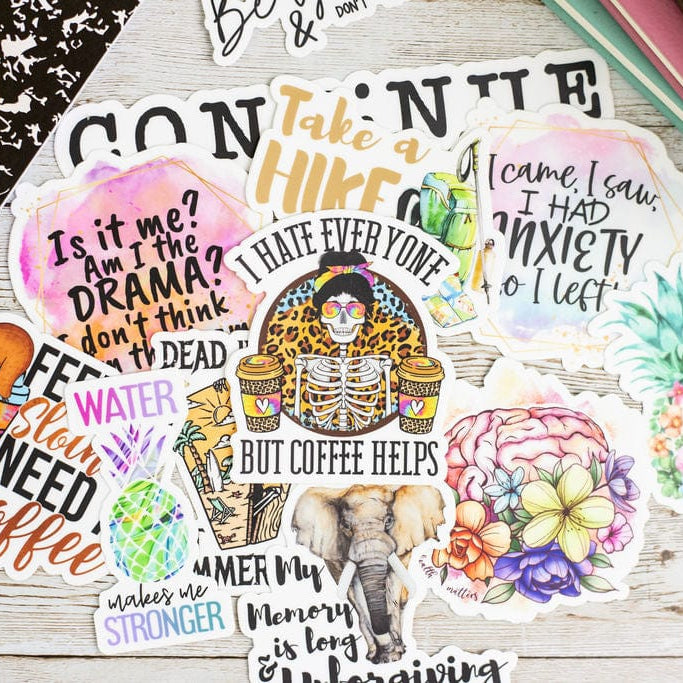 Be
&
DON'T
Take a
HIKE
I came, I saw,
I HAD
ANXIETY
so I left
Is it me?
Am I the
DRAMA?
I don't think
I HATE EVERYONE
BUT COFFEE HELPS
FEEL
NEED
Coffee
WATER
makes me
STRONGER
DEAD
SUMMER
My
Memory
is long
& Unforgiving
health matters